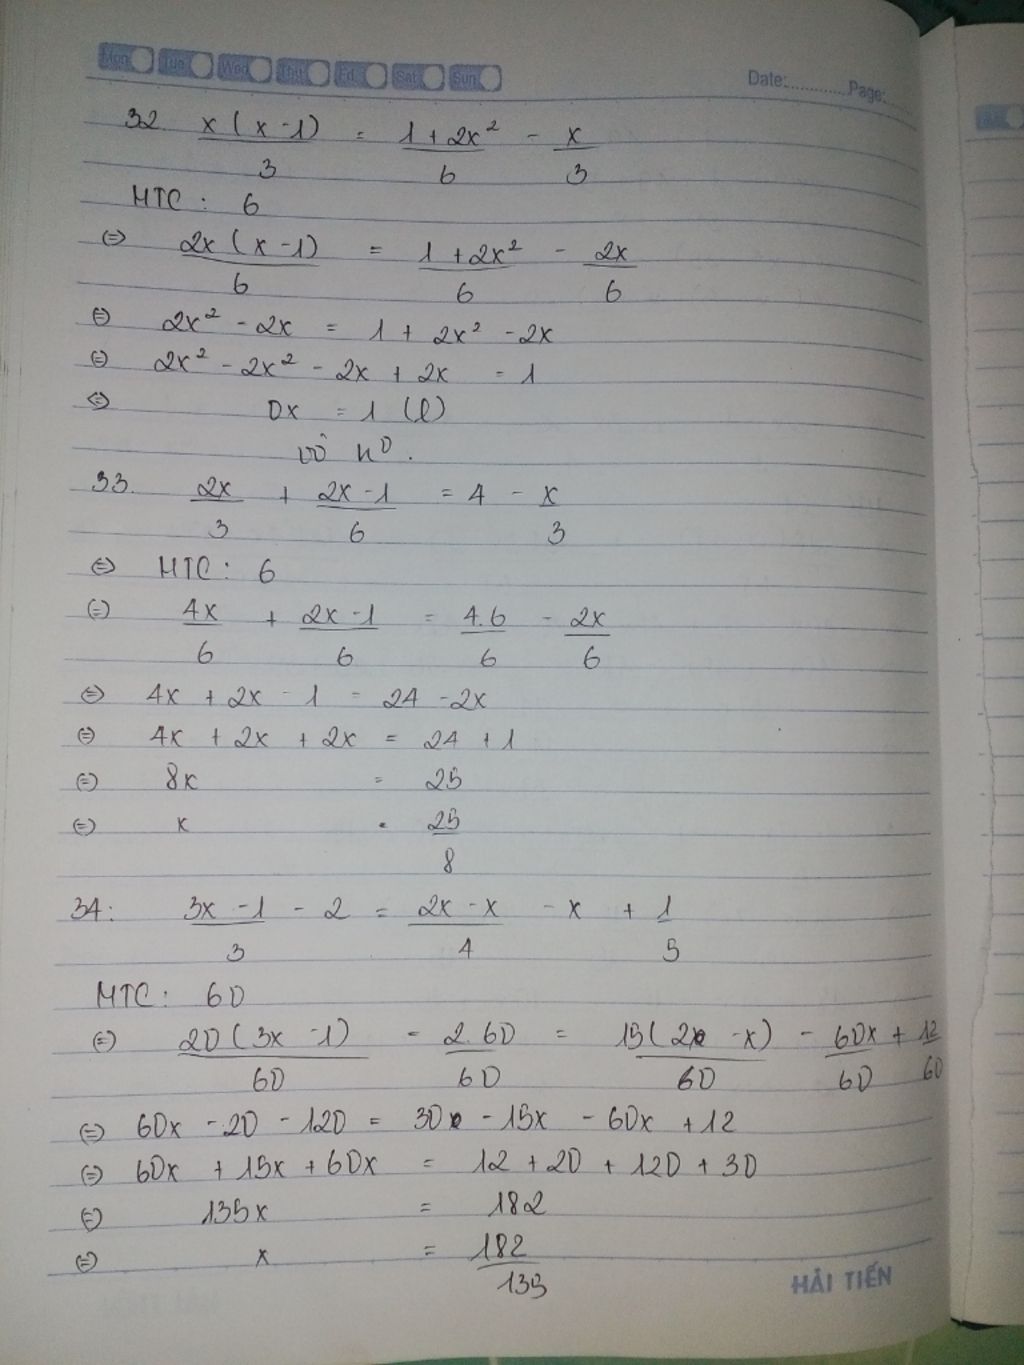 Mon Tue Wed Thu Fri Sat Sun Date:............Page:
32. x(x-1)/3 = 1+2x²/6 - x/3
MTC: 6
⇔ 2x(x-1)/6 = 1+2x²/6 - 2x/6
⇔ 2x² - 2x = 1 + 2x² - 2x
⇔ 2x² - 2x² - 2x + 2x = 1
⇔ 0x = 1 (l)
vô n⁰.
33. 2x/3 + 2x-1/6 = 4 - x/3
⇔ MTC: 6
⇔ 4x/6 + 2x-1/6 = 4.6/6 - 2x/6
⇔ 4x + 2x - 1 = 24 - 2x
⇔ 4x + 2x + 2x = 24 + 1
⇔ 8x = 25
⇔ x = 25/8
34: 3x-1/3 - 2 = 2x-x/4 - x + 1/5
MTC: 60
⇔ 20(3x-1)/60 - 2.60/60 = 15(2-x)/60 - 60x/60 + 12/60
⇔ 60x - 20 - 120 = 30 - 15x - 60x + 12
⇔ 60x + 15x + 60x = 12 + 20 + 120 + 30
⇔ 135x = 182
⇔ x = 182/135
HẢI TIẾN